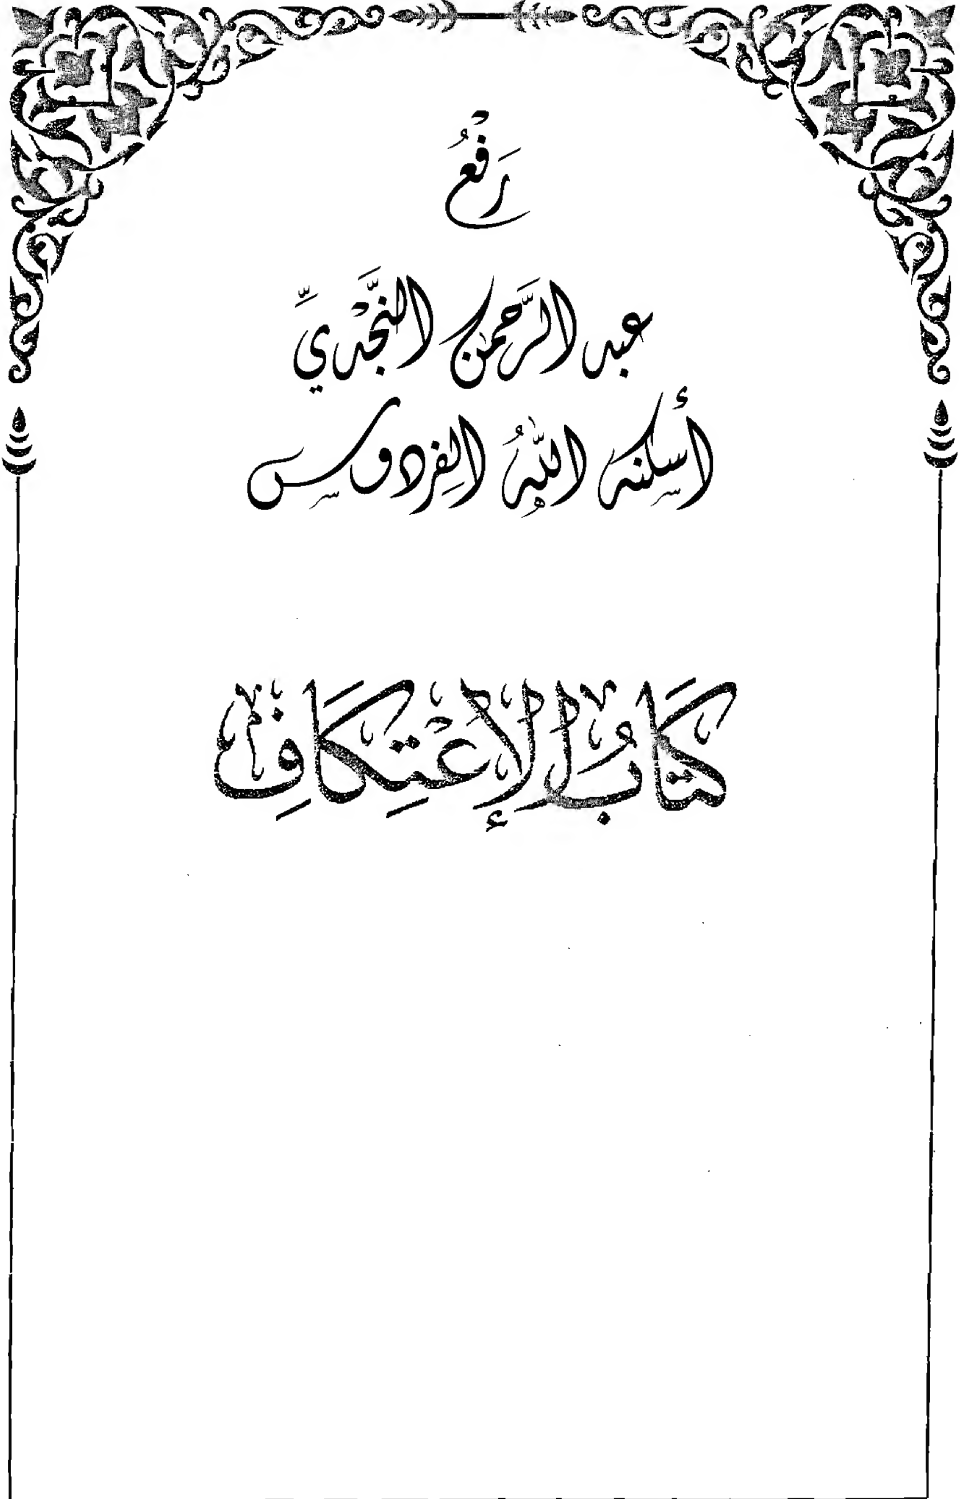 رَفْعُ
عبد الرَّحمن النَّجْديِّ
أسكنه اللهُ الفِردوس
كِتَابُ الإِعْتِكَافِ